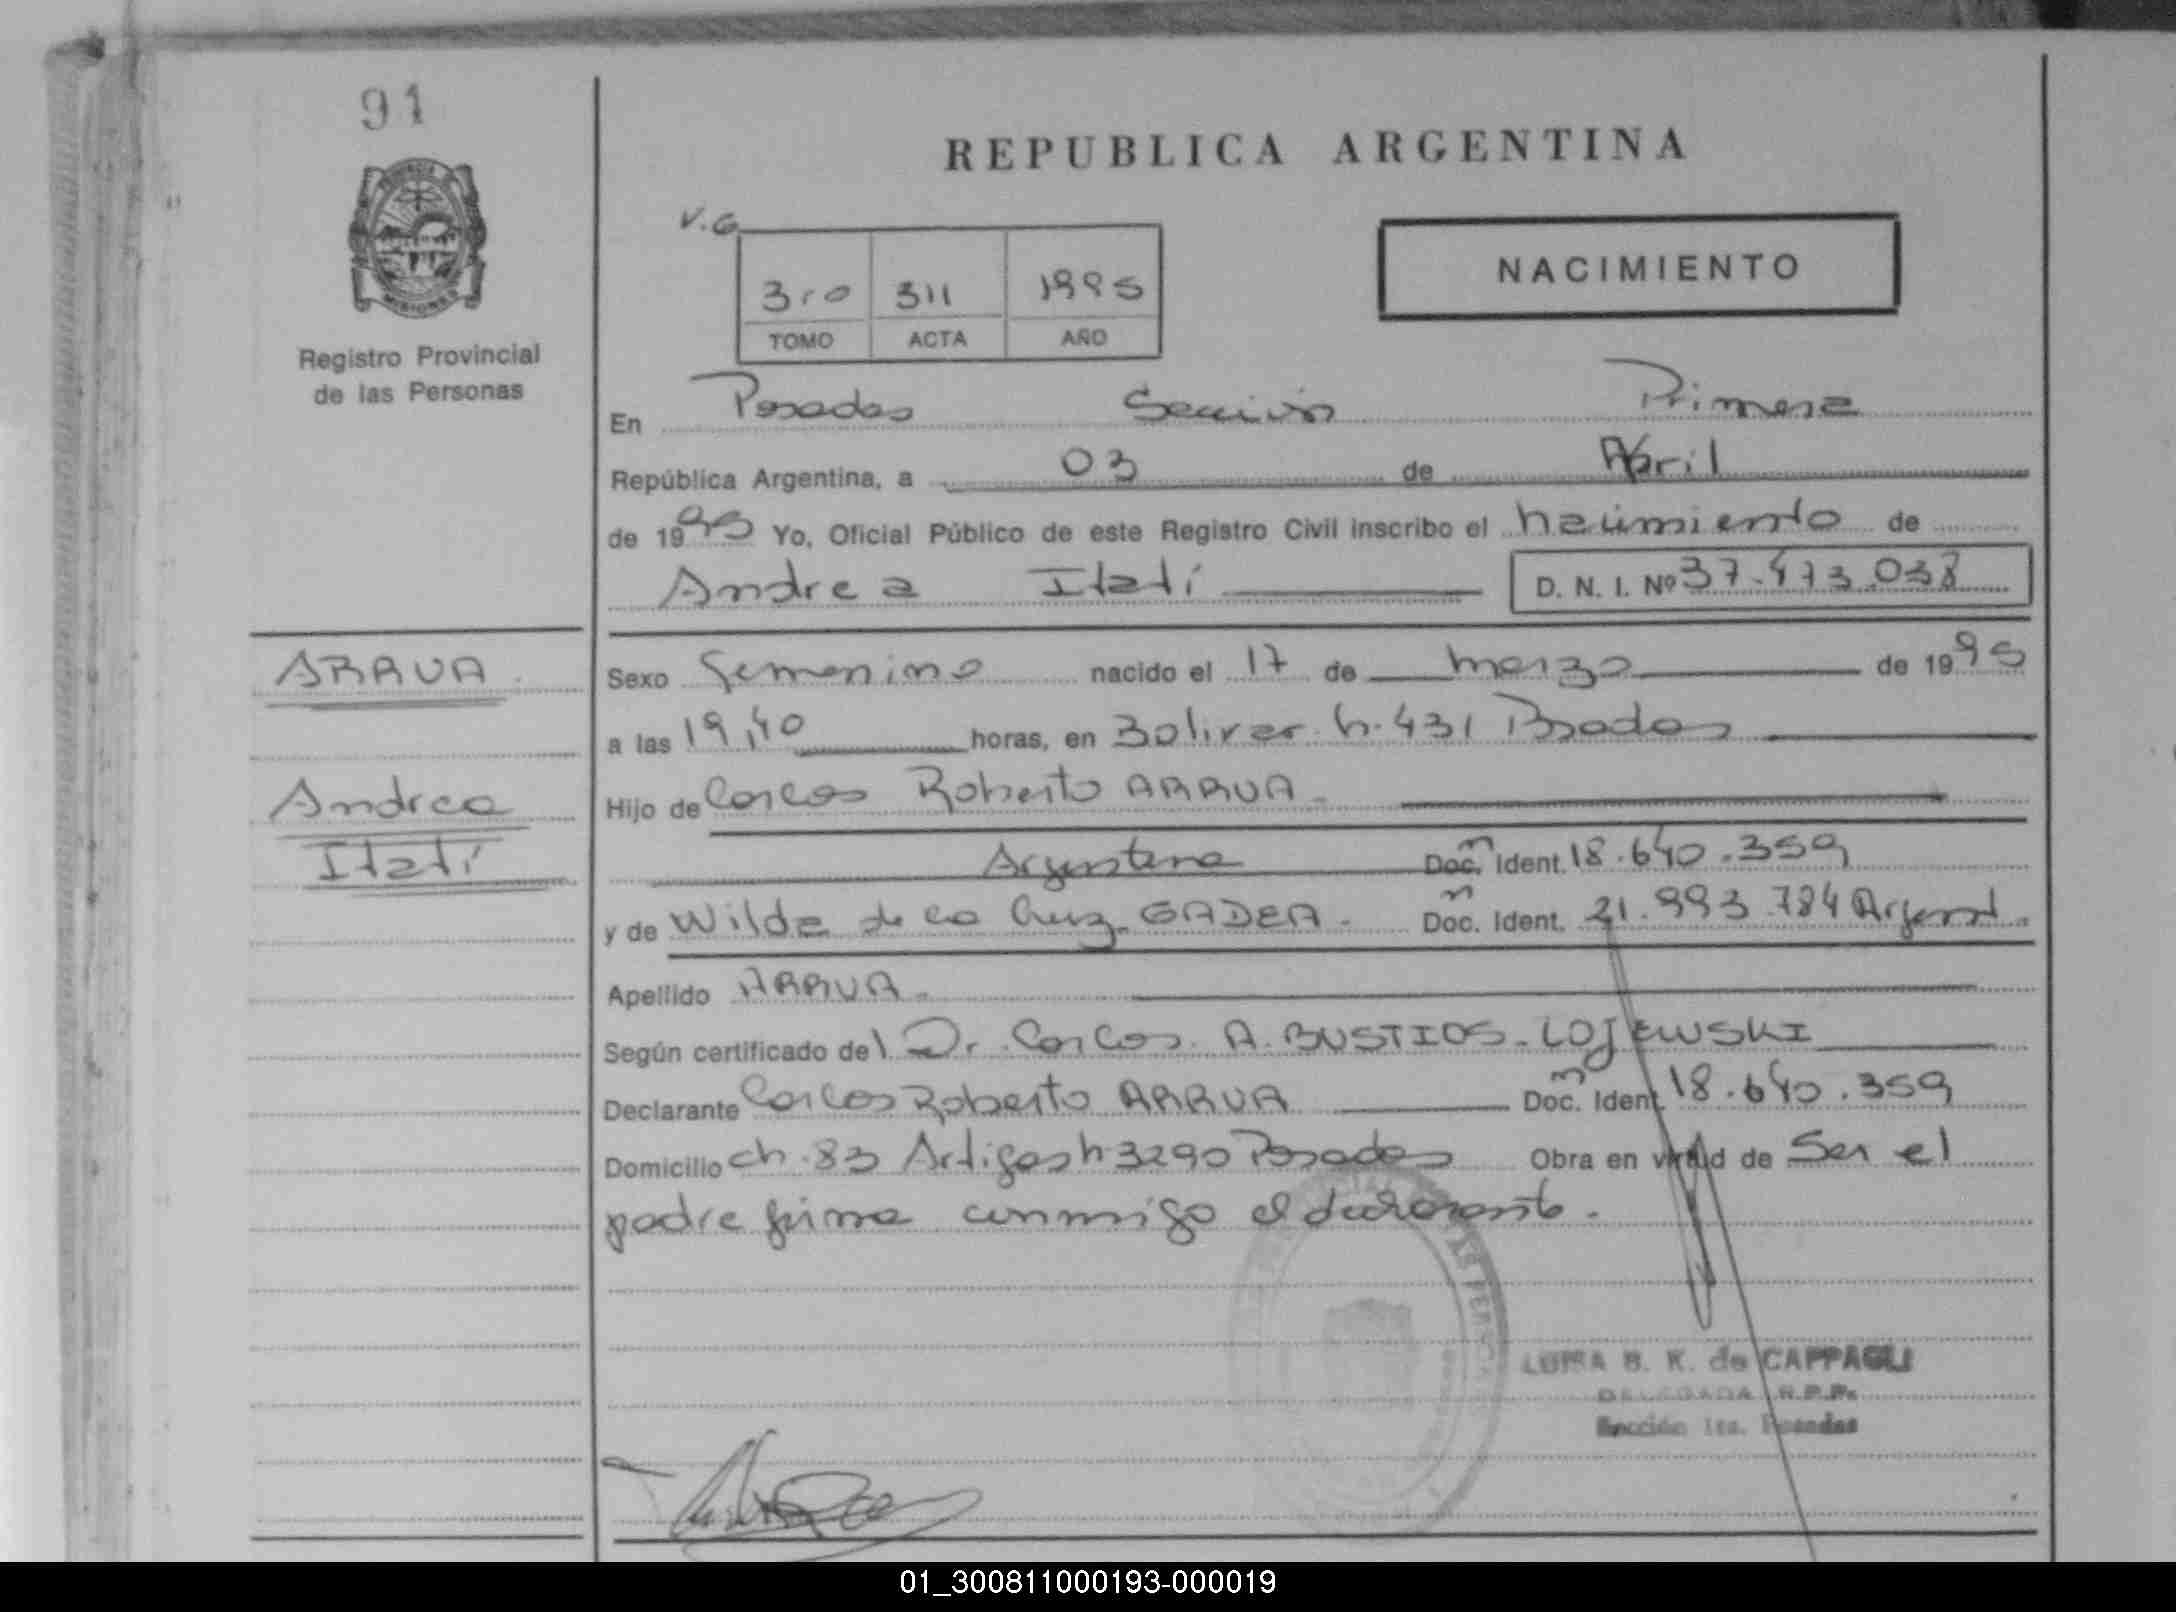 91
REPUBLICA ARGENTINA
V.G
NACIMIENTO
3ro 311 1995
TOMO ACTA AÑO
Registro Provincial
de las Personas
En Posadas Sección Primera
República Argentina, a 03 de Abril
de 1995 Yo, Oficial Público de este Registro Civil inscribo el nacimiento de
Andrea Itatí D. N. I. Nº 37.473.038
ARRUA
Sexo femenino nacido el 17 de marzo de 1995
a las 19,40 horas, en Bolivar h. 431 Posadas
Andrea
Hijo de Carlos Roberto ARRUA.
Itatí
Argentena Doc. Ident. 18.640.359
y de Wilda de la Cruz GADEA. Doc. Ident. 21.993.784 Argent.
Apellido ARRUA.
Según certificado del Dr. Carlos A. BUSTIOS-LOJEWSKI
Declarante Carlos Roberto ARRUA Doc. Ident. 18.640.359
Domicilio ch. 83 Artigas h 3290 Posadas Obra en virtud de Ser el
padre firma conmigo el declarante.
LUISA B. K. de CAPPAGLI
DELEGADA R.P.P.
Sección 1ra. Posadas
01_300811000193-000019